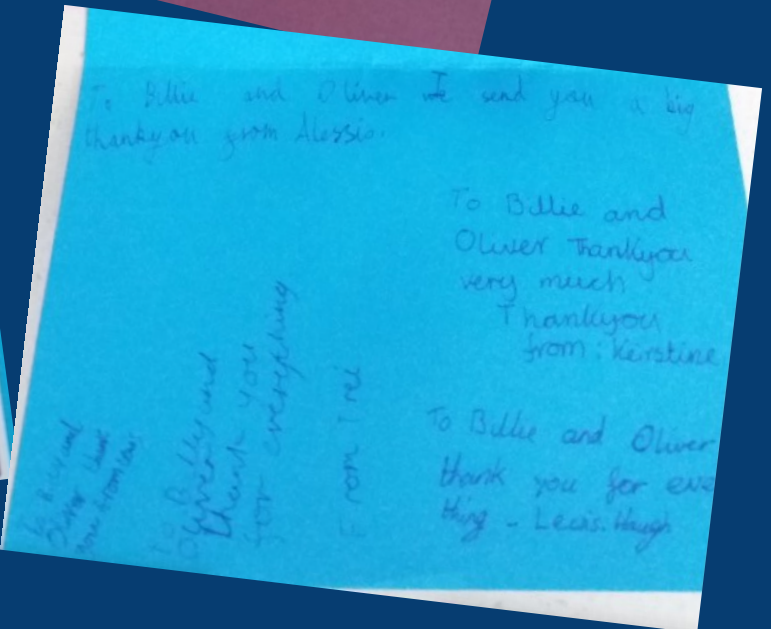 To Billie and Oliver I send you a big
thankyou from Alessio.
To Billie and
Oliver Thankyou
very much
Thankyou
from: Keirstine
To Billie and Oliver
thank you for eve
thing - Lewis. Haugh
To Billy and
Oliver
thank you
for everything
From
To Billy and
Oliver thank
you from